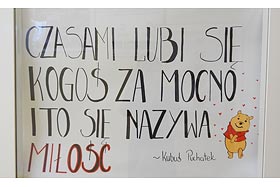 CZASAMI LUBI SIĘ
KOGOŚ ZA MOCNO
I TO SIĘ NAZYWA.
MIŁOŚĆ
~Kubuś Puchatek